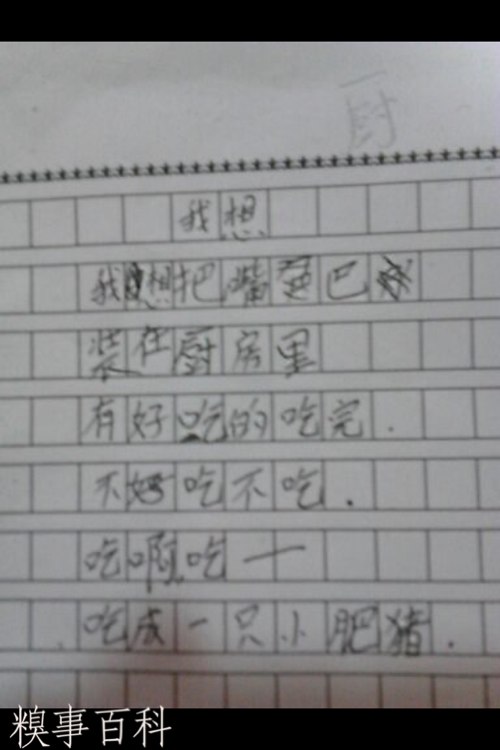 厨
我想
我想把嘴巴
装在厨房里
有好吃的吃完.
不好吃不吃.
吃啊吃一
吃成一只小肥猪.
糗事百科